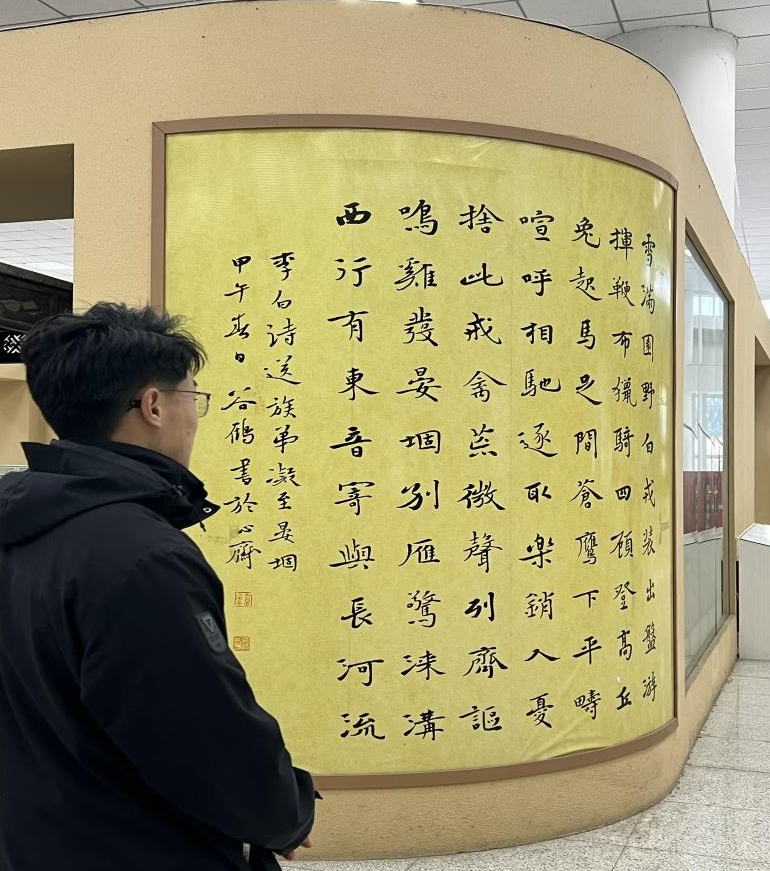 雪滿園野白戎裝出盤游
揮鞭布獵騎四顧登高丘
兔起馬足間蒼鷹下平疇
喧呼相馳逐取楽銷人憂
捨此戒禽荒微聲列齊謳
鳴雞發晏堌別雁驚淶溝
西行有東音寄與長河流
李白詩送族弟凝至晏堌
甲午春日谷鶴書於心齋